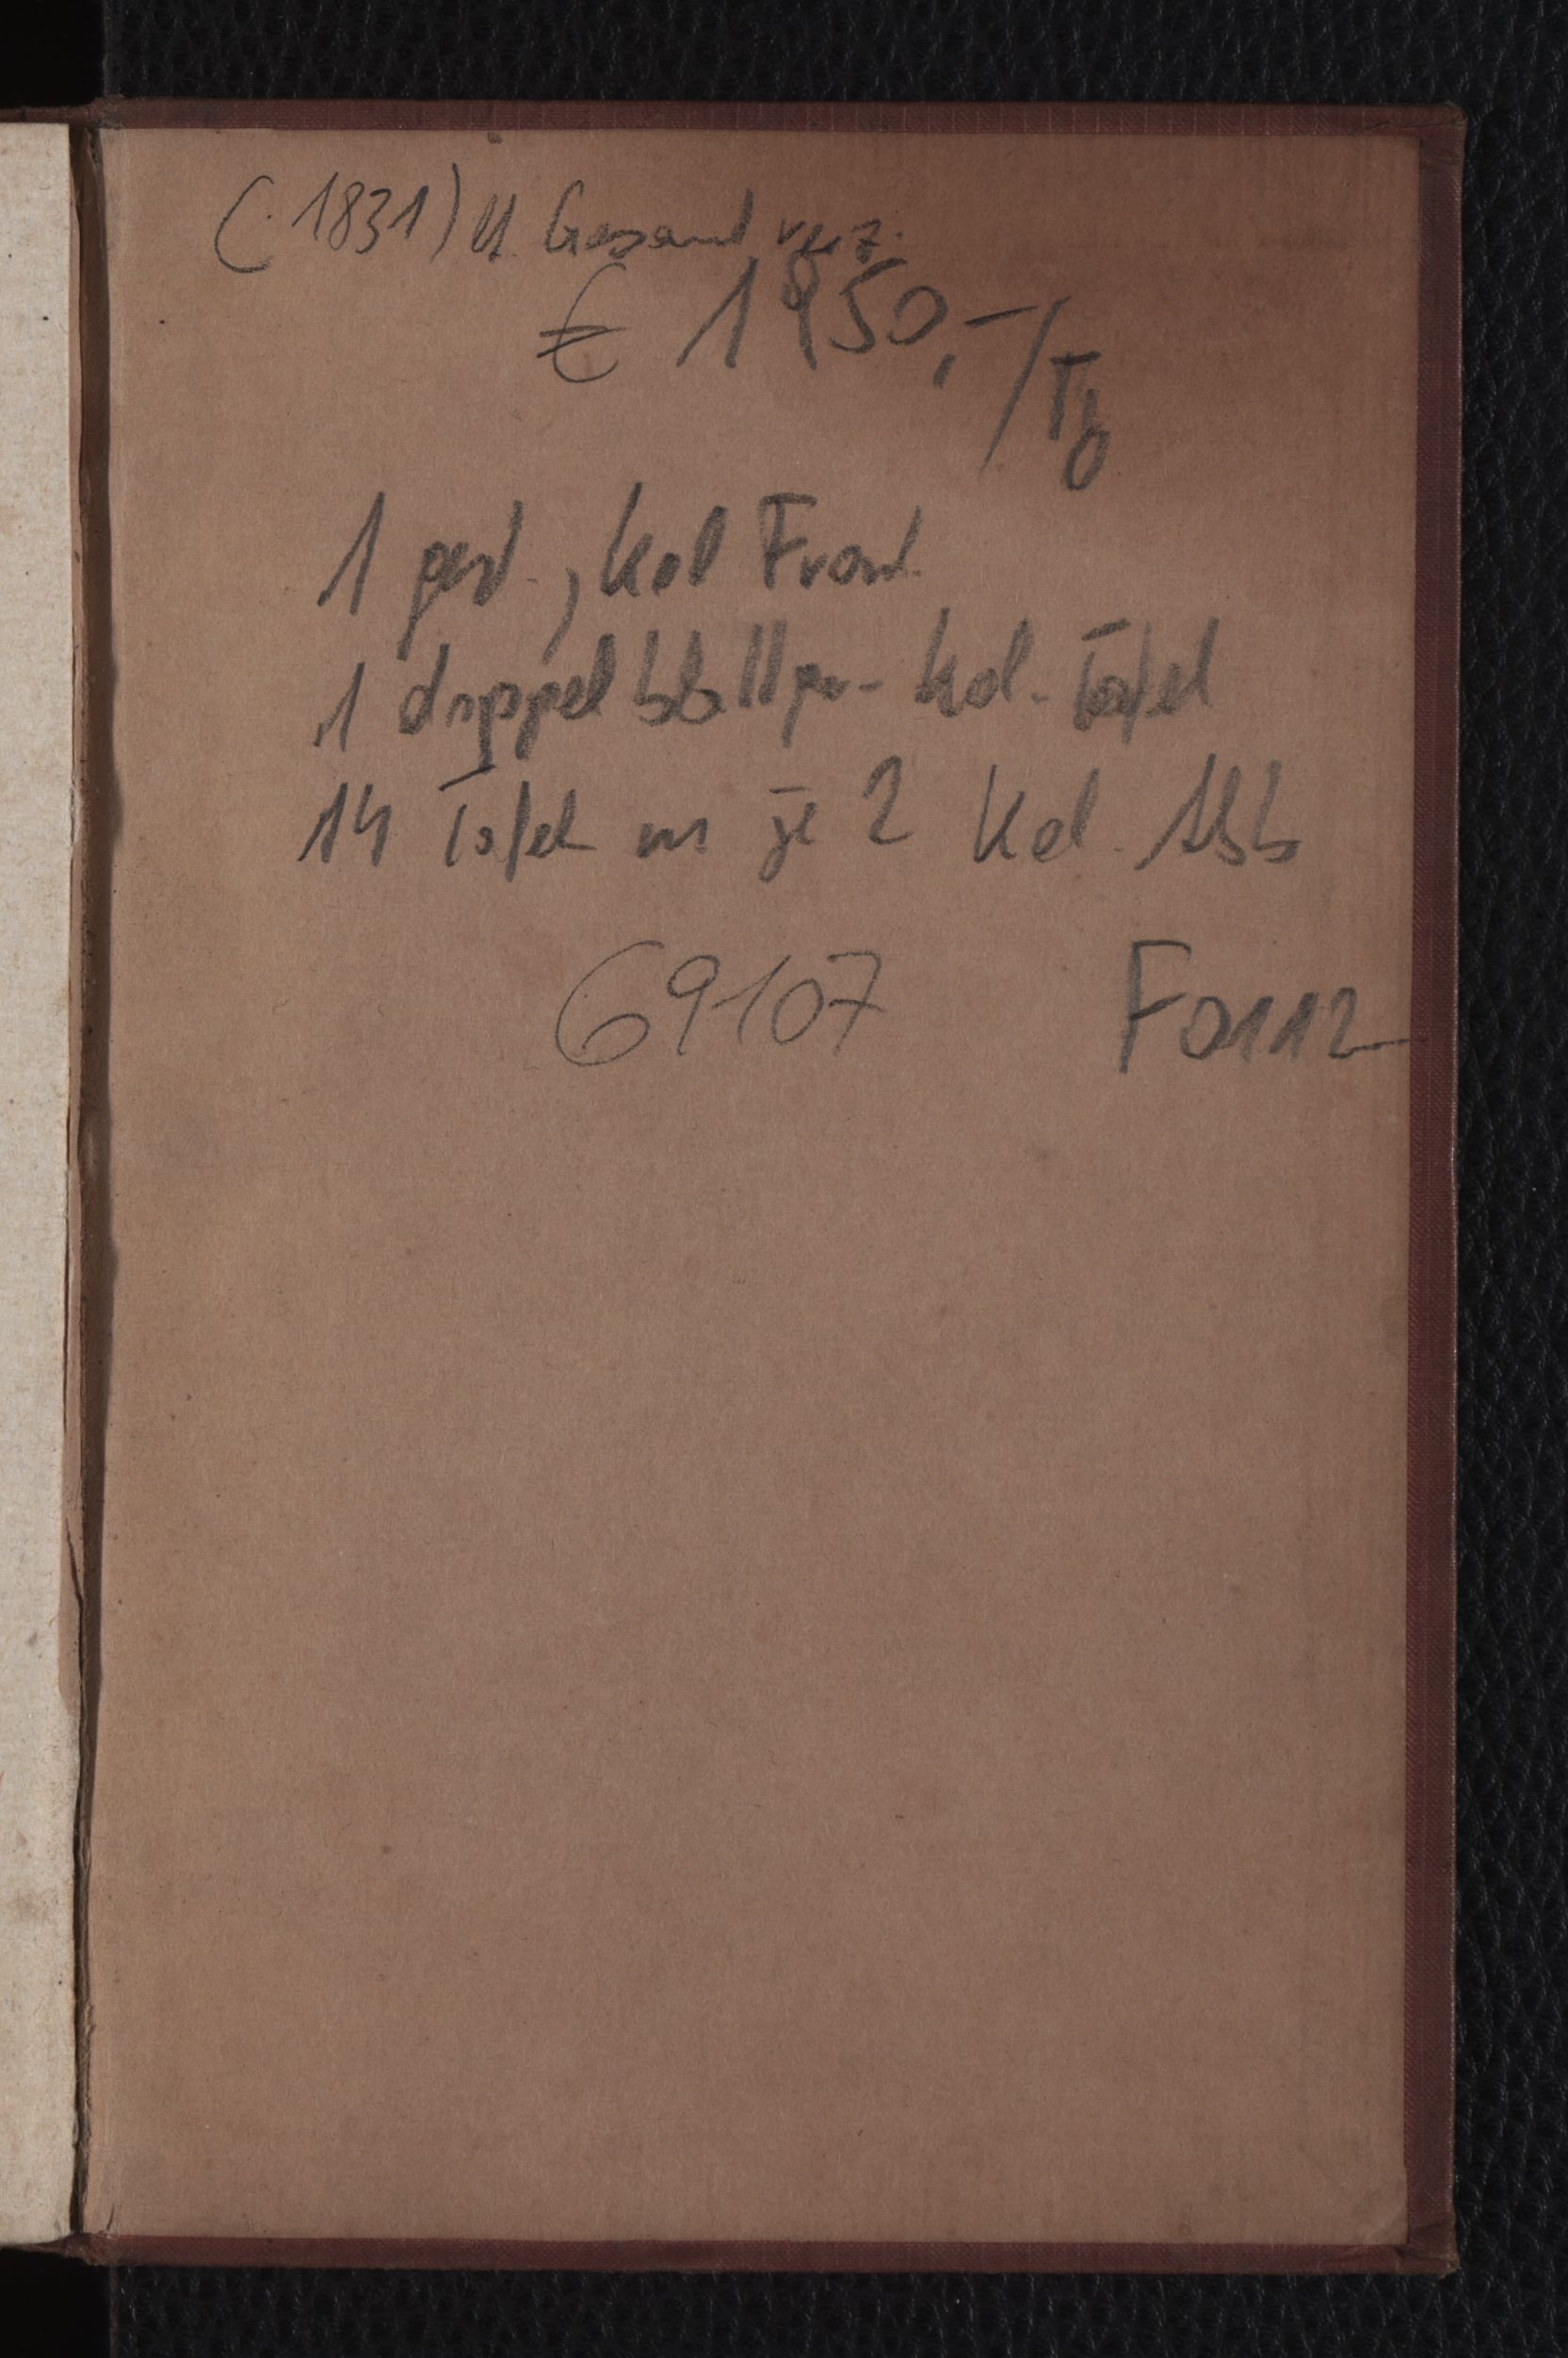 (1831) u. Gesamtverz.
€ 1950,-/Tb
1 gest., kol Front.
1 doppelblattgr. kol. Tafel
14 Tafeln m je 2 kol. Abb
69107 Fa112